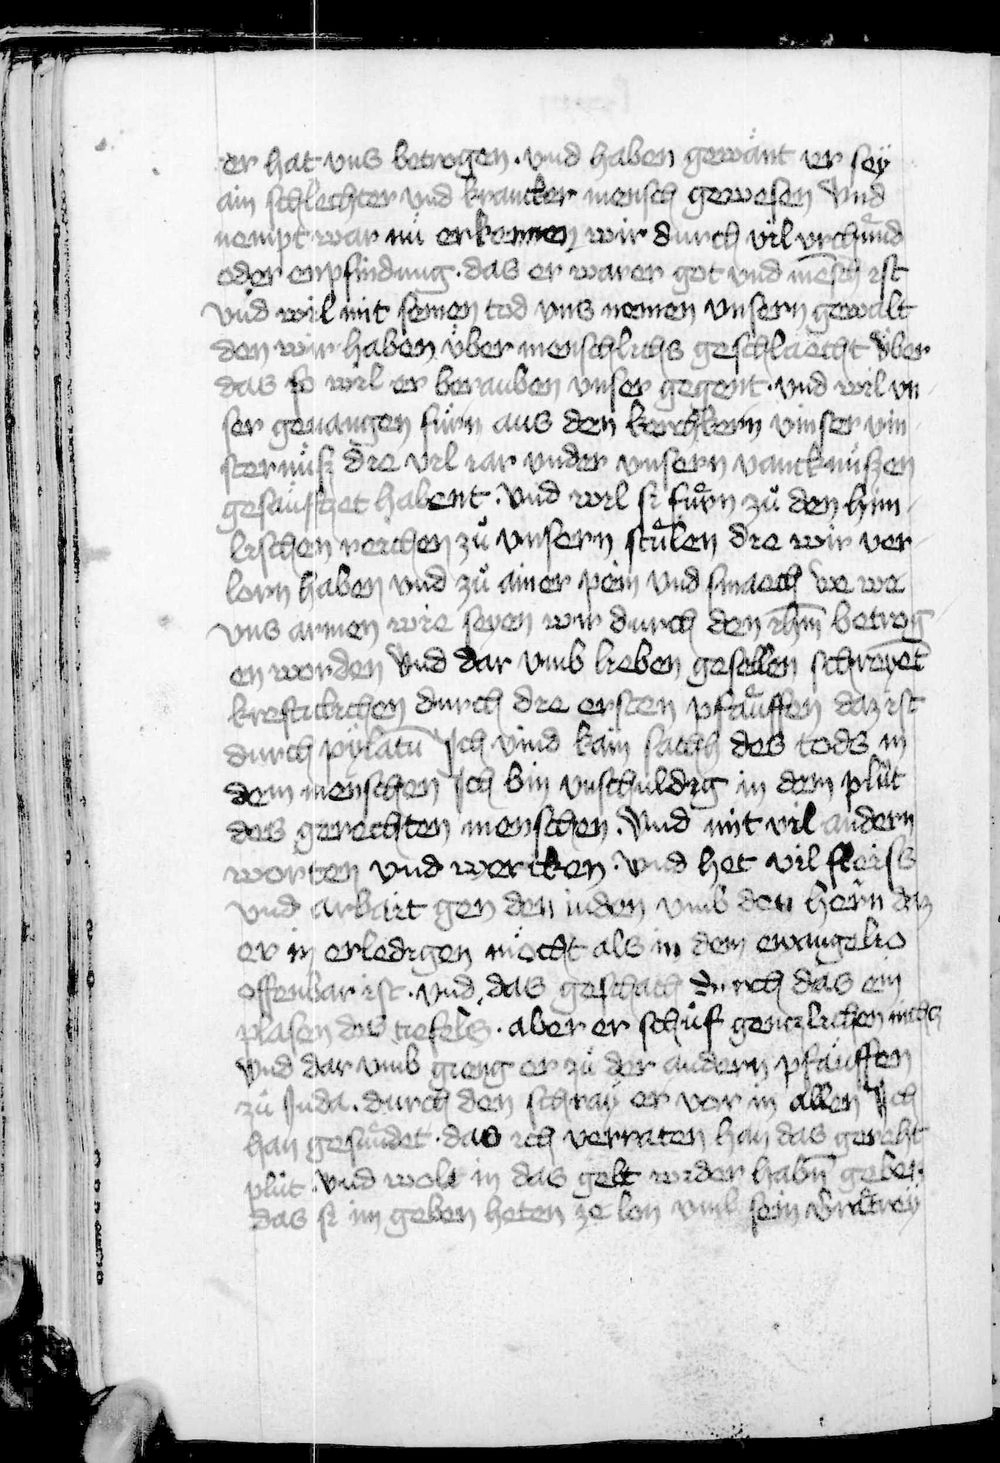 er hat vns betrogen. vnd haben gewänt er seÿ
ain schlechter vnd krancker mensch gewesen Vnd
nempt war nü erkennen wir durch vil vrchünd
oder enpfindung. das er warer got vnd mēsch ist
vnd wil mit seinen tod vns nemen vnsern gewalt
den wir haben über menschlichs geschlaecht über
das so wil er berauben vnser gegent. vnd wil vn
ser geuangen fürn aus den kerchkern vinser vin
sternüsz die vil iar vnder vnsern vancknüszen
gesäufftzet habent. Vnd wil si fuͤrn zuͦ den him
lischen reichen zuͦ vnsern stuͤlen die wir ver
lorn haben vnd zuͦ ainer pein vnd smaech we we
vns armen wie seyen wir durch den ihm̄ betrog
en worden Vnd dar vmb lieben gesellen schreyet
kresticlichen durch die ersten pfäuffen daz ist
durch pylatū Ich vind kain sachh des tods in
dem menschen Ich bin vnschuldig in dem pluͦt
des gerechten menschen. Vnd mit vil andern
worten vnd wercken. vnd het vil fleiss
vnd arbait gen den iuden vmb den hern daz
er in erledigen möcht als in dem ewangelio
offenbar ist. vnd das geschach durch das ein
plasen des tiefels. aber er schuͦf genczlichen nichs
Vnd dar vmb gieng er zuͦ der andern pfäuffen
zuͦ Juda. durch den schray er vor in allen Ich
han gesündet. das ich verraten han das gereht
pluͦt. vnd wolt in das gelt wider habn̄ geben
das si im geben heten ze lon vmb sein vrätreÿ